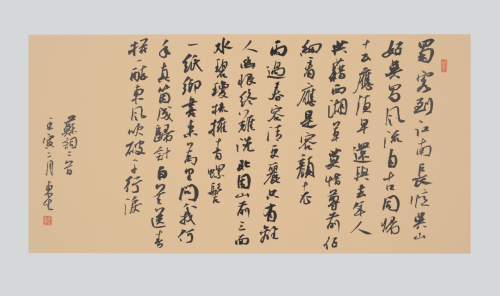 蜀客到江南長憶吳山
好吳蜀風流自古同歸
去應須早還與去年人
共藉西湖草莫惜尊前仔
細看應是容顏老
雨過春容清更麗只有離
人幽恨終難洗北固山前三面
水碧瓊梳擁青螺髻
一紙鄉書來萬里問我何
年真箇成歸計白首送春
拚一醉東風吹破千行淚
蘇詞二首
壬寅二月